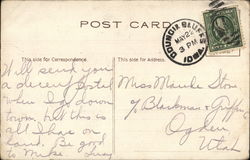 POST CARD
COUNCIL BLUFFS
MAY 22
3 PM
IOWA
This side for Correspondence.
This side for Address.
Will send you
a postal
when I go down
town, but this is
all I have on
hand. Be good
Miss Maude Stone
Blackman & Griffin
Ogden,
Utah